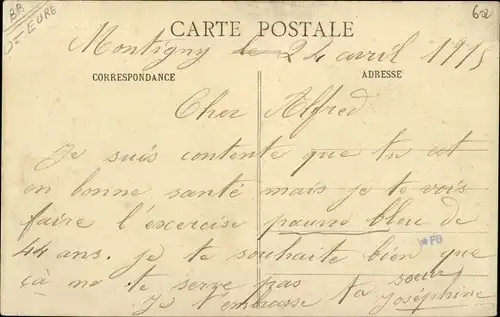 BB
D=EURE
60
CARTE POSTALE
Montigny le 24 avril 1915
CORRESPONDANCE
ADRESSE
Cher Alfred
Je suis contente que tu est
en bonne santé mais je te vois
faire l'exercise pauvre bleu de
44 ans. je te souhaite bien que
*PB
çà ne te serve pas
Je t'embrasse ta soeur
Joséphine